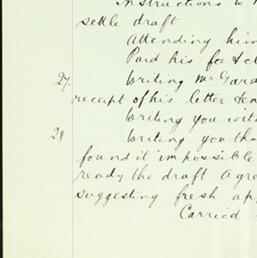 Instructions to
settle draft
Attending him
Paid his fee & cl
27. Writing Mr Gard
receipt of his letter
Writing you with
28 Writing you tha
found it impossible
ready the draft Agre
suggesting fresh ap
Carried